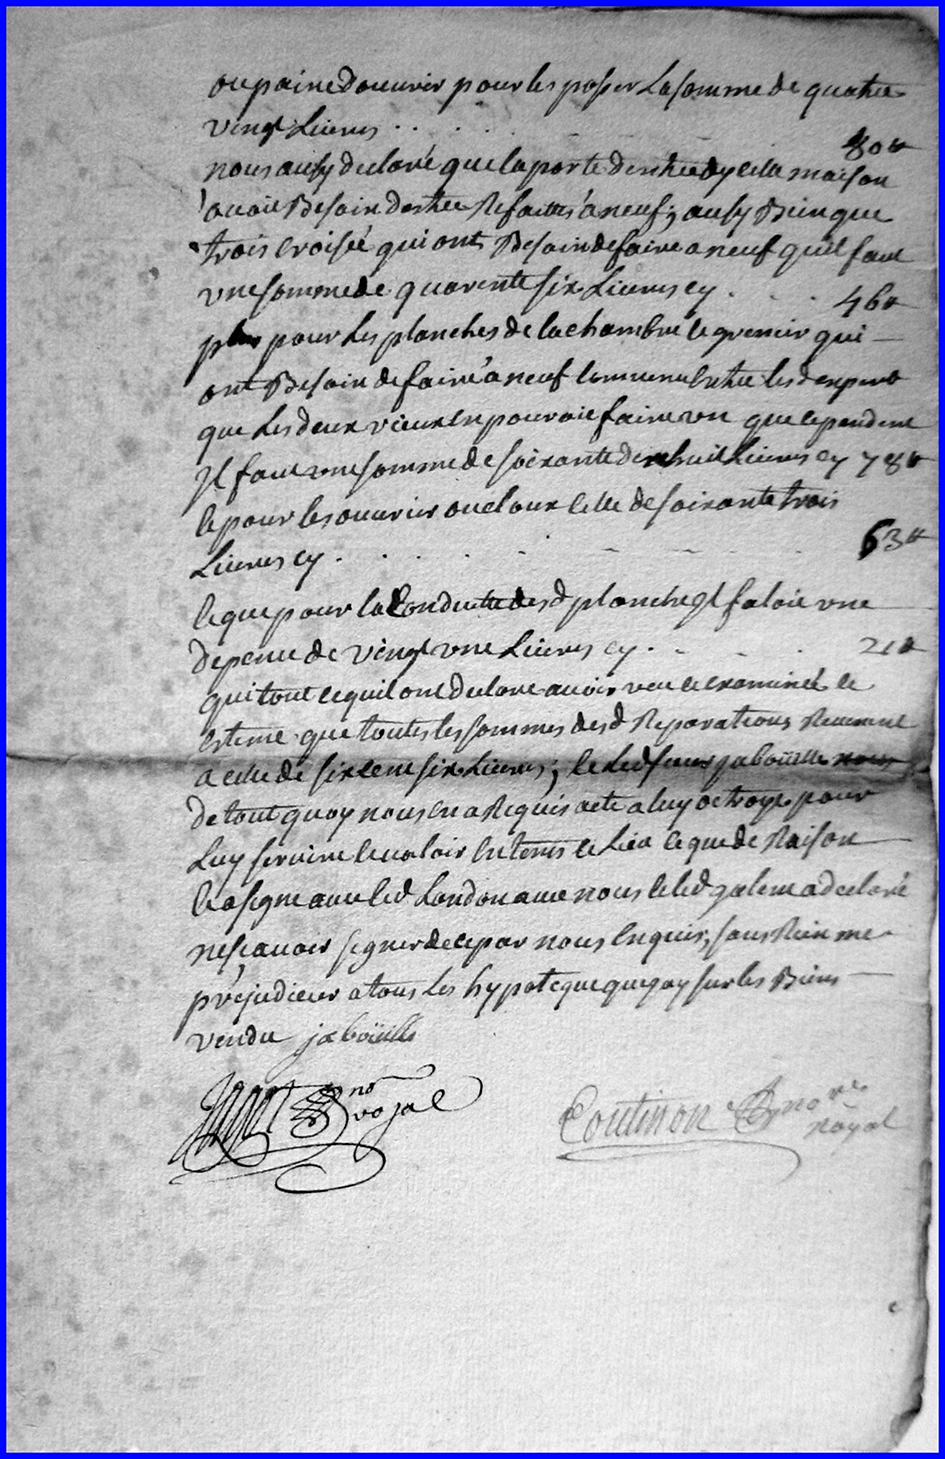 ou paine douvrir pour les poser La somme de quatre
vingt Livres . . . . 80 lt
nous ausy declaré que la porte dentree dycelle maison
avoit Besoin destre Refaitte a neuf; ausy Bien que
trois croisée qui ont Besoin de faire a neuf quil faut
une somme de quarente six Livres cy . . . 46 lt
plus pour Les planches de la chambre le grenier qui
ont Besoin de faire a neuf Les d expert
que Les deux vieux en pouroit faire un que cependent
Jl faut une somme de soixante dixhuit Livres cy 78 lt
le pour les ouvrier ou cloux celle de soixante trois
Livres cy . . . . . 63 lt
le que pour la Conduitte des d planche jl faloit une
depence de vingt une Livres cy . . . 21 lt
qui tout ce quil ont declare avoir veu le examiné le
estime que toutes les sommes des d Reparations Revienne
a celle de six cent six Livres; le Led sieur jaboüille nous
de tout quoy nous en a Requis acte a luy octroye pour
Luy servire le valoir en tems le Lieu le que de Raison
le a signe avec led Londou avec nous le led galene a declaré
ne sçavoir signer de ce par nous enquis, sans Rien me
prejudicier a tous Les hypoteque que jay sur les Biens
vendu jaboüille
no royal
Coutinon nore royal